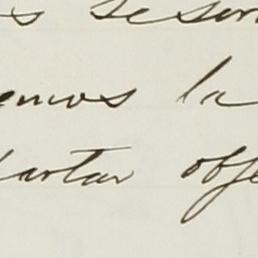 s seson
emos la
artar obje